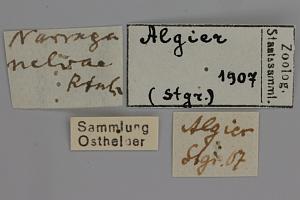 Narraga
nelvae
Rthb.
Algier
1907
(Stgr.)
Zoolog.
Staatssamml.
Sammlung
Osthelder
Algier
Stgr. 07